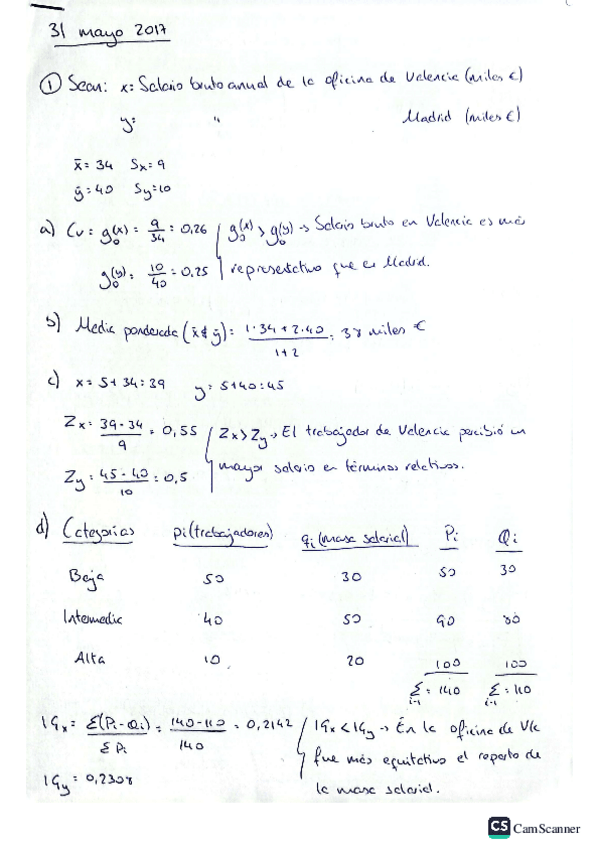 31 mayo 2017
① Sean: x: Salario bruto anual de la oficina de Valencia (miles €)
y: " Madrid (miles €)
x̄ = 34 Sx = 9
ȳ = 40 Sy = 10
a) CV = g₀(x) = 9/34 = 0,26 / g₀(x) > g₀(y) → Salario bruto en Valencia es más
g₀(y) = 10/40 = 0,25 representativo que en Madrid.
b) Media ponderada (x̄ e ȳ) = (1·34 + 2·40)/(1+2) = 38 miles €
c) x = 5 + 34 = 39 y = 5 + 40 = 45
Zx = (39 - 34)/9 = 0,55 / Zx > Zy → El trabajador de Valencia percibió un
Zy = (45 - 40)/10 = 0,5 mayor salario en términos relativos.
d) Categorías pi (trabajadores) qi (masa salarial) Pi Qi
Baja 50 30 50 30
Intermedia 40 50 90 80
Alta 10 20 100 100
Σ = 140 Σ = 110
i-1 i-1
IGx = Σ(Pi - Qi)/ΣPi = (140 - 110)/140 = 0,2142 / IGx < IGy → En la oficina de Vlc
fue más equitativo el reparto de
IGy = 0,2308 la masa salarial.
CS CamScanner